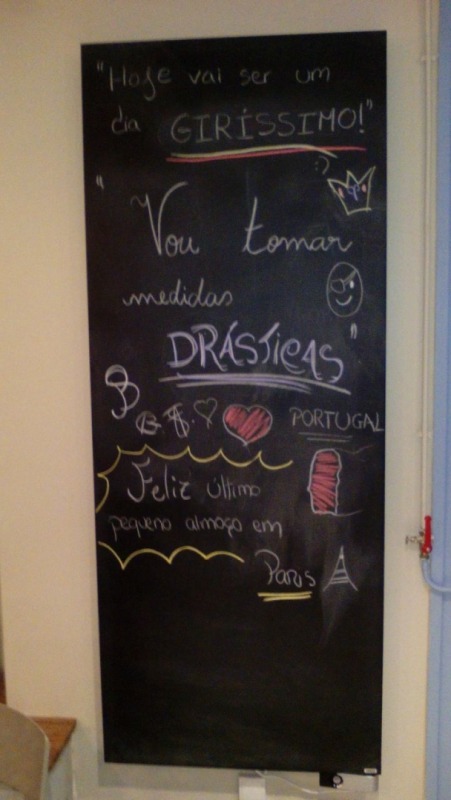 "Hoje vai ser um
dia GIRÍSSIMO!"
:)
"Vou tomar
medidas
DRÁSTICAS"
PORTUGAL
Feliz último
pequeno almoço em
Paris